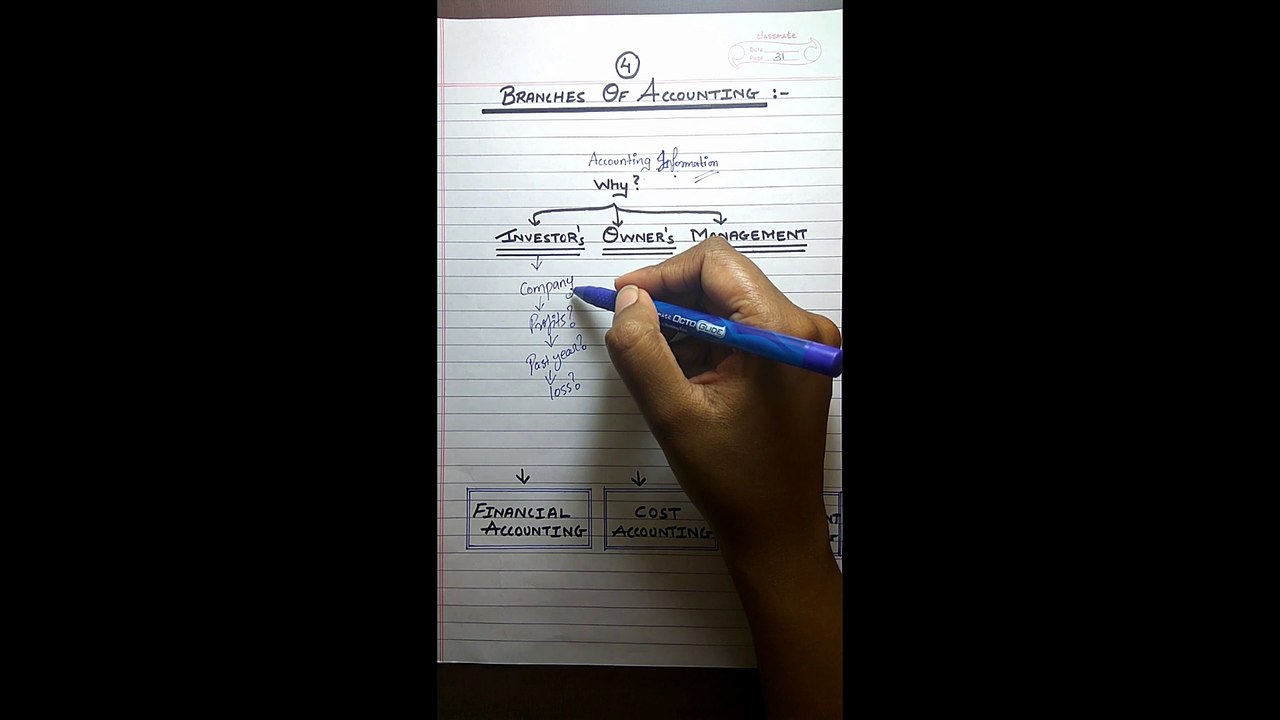 classmate
Date
Page 31
4
BRANCHES OF ACCOUNTING :-
Accounting Information
Why?
INVESTOR'S OWNER'S MANAGEMENT
Company
Profits?
Past year?
loss?
OCTO GLIDE
FINANCIAL ACCOUNTING
COST ACCOUNTING